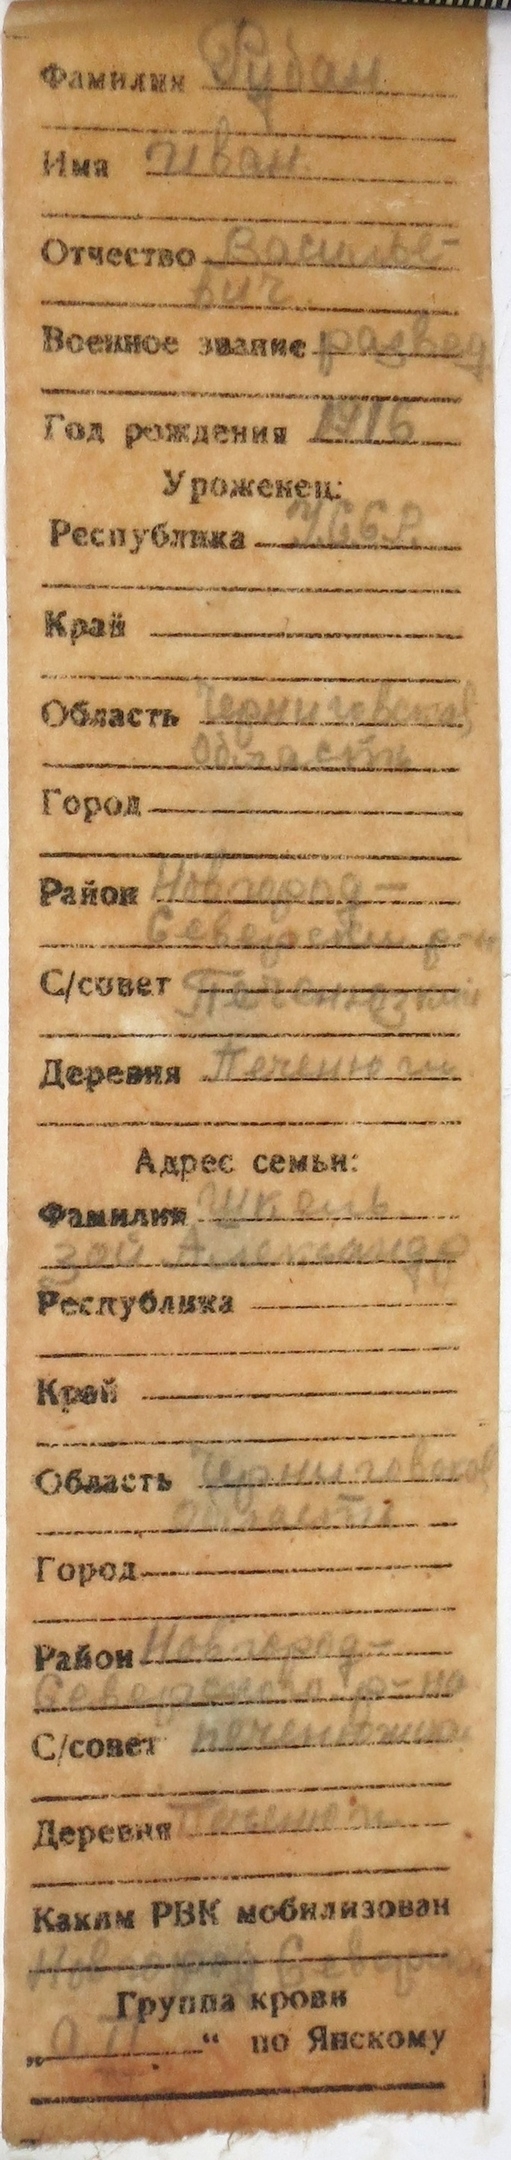 Фамилия Рубан
Имя Иван
Отчество Василье-
вич
Военное звание развед
Год рождения 1916
Уроженец:
Республика УССР.
Край
Область Черниговской
области
Город
Район Новгород-
Северский р-н
С/совет Печенюзкий
Деревня Печенюги
Адрес семьи:
Фамилия
Александр
Республика
Край
Область Черниговской
области
Город
Район Новгород-
Северского р-на
С/совет
Деревня Печенюги
Каким РВК мобилизован
Новгород Северским
Группа крови
„ О II “ по Янскому